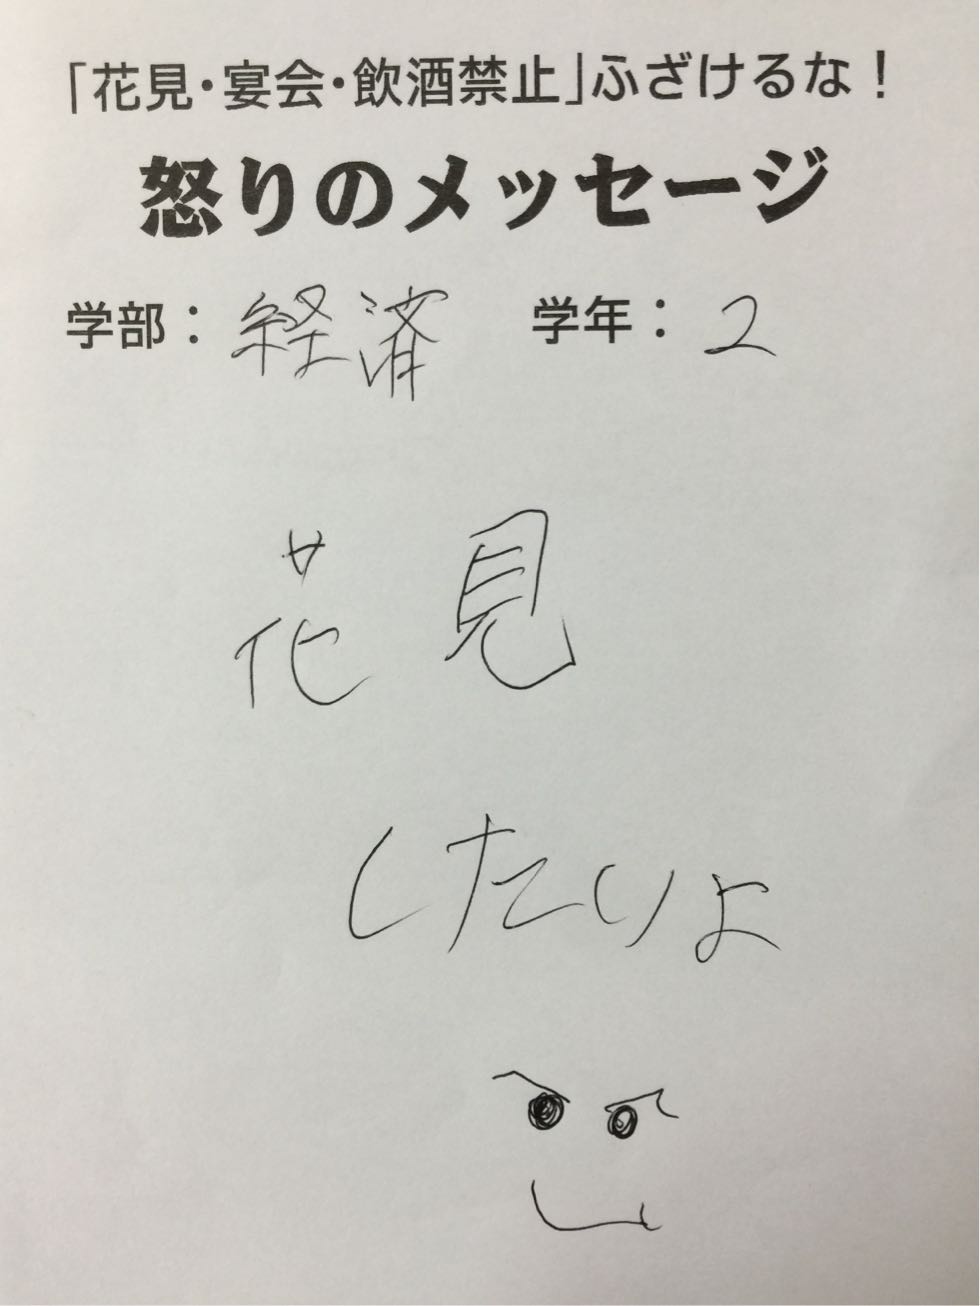 「花見・宴会・飲酒禁止」ふざけるな！
怒りのメッセージ
学部： 経済 学年： 2
花見
したいよ